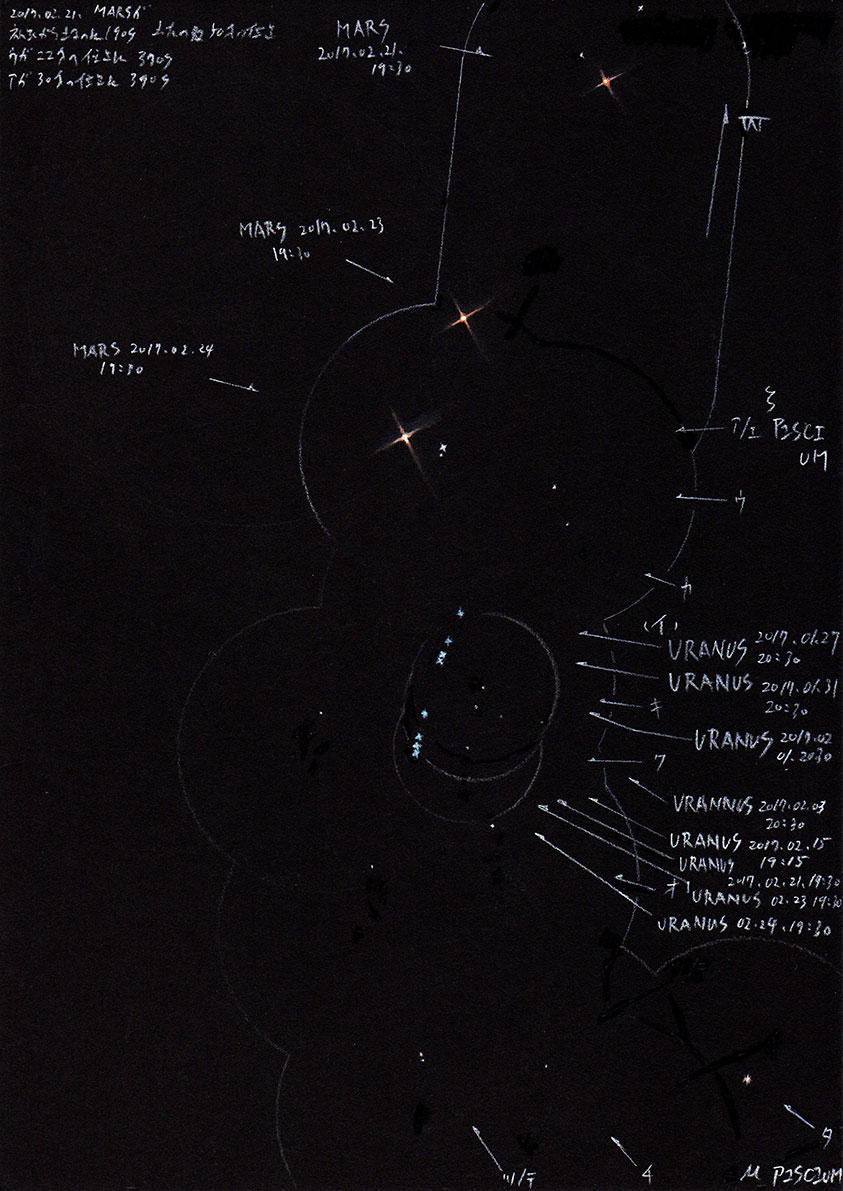 2017.02.21. MARSが
MARS
2017.02.21.
19:30
MARS 2017.02.23
19:30
MARS 2017.02.24
19:30
ξ
ア/エ PISCI
UM
ウ
カ
(イ)
URANUS 2017.01.27
20:30
URANUS 2017.01.31
20:30
キ
URANUS 2017.02
01.2030
ク
URANNUS 2017.02.03
20:30
URANUS 2017.02.15
19:15
URANUS
2017.02.21.19:30
オ
URANUS 02.23 19:30
URANUS 02.24.19:30
タ
ツ/テ
チ
μ PISCIUM